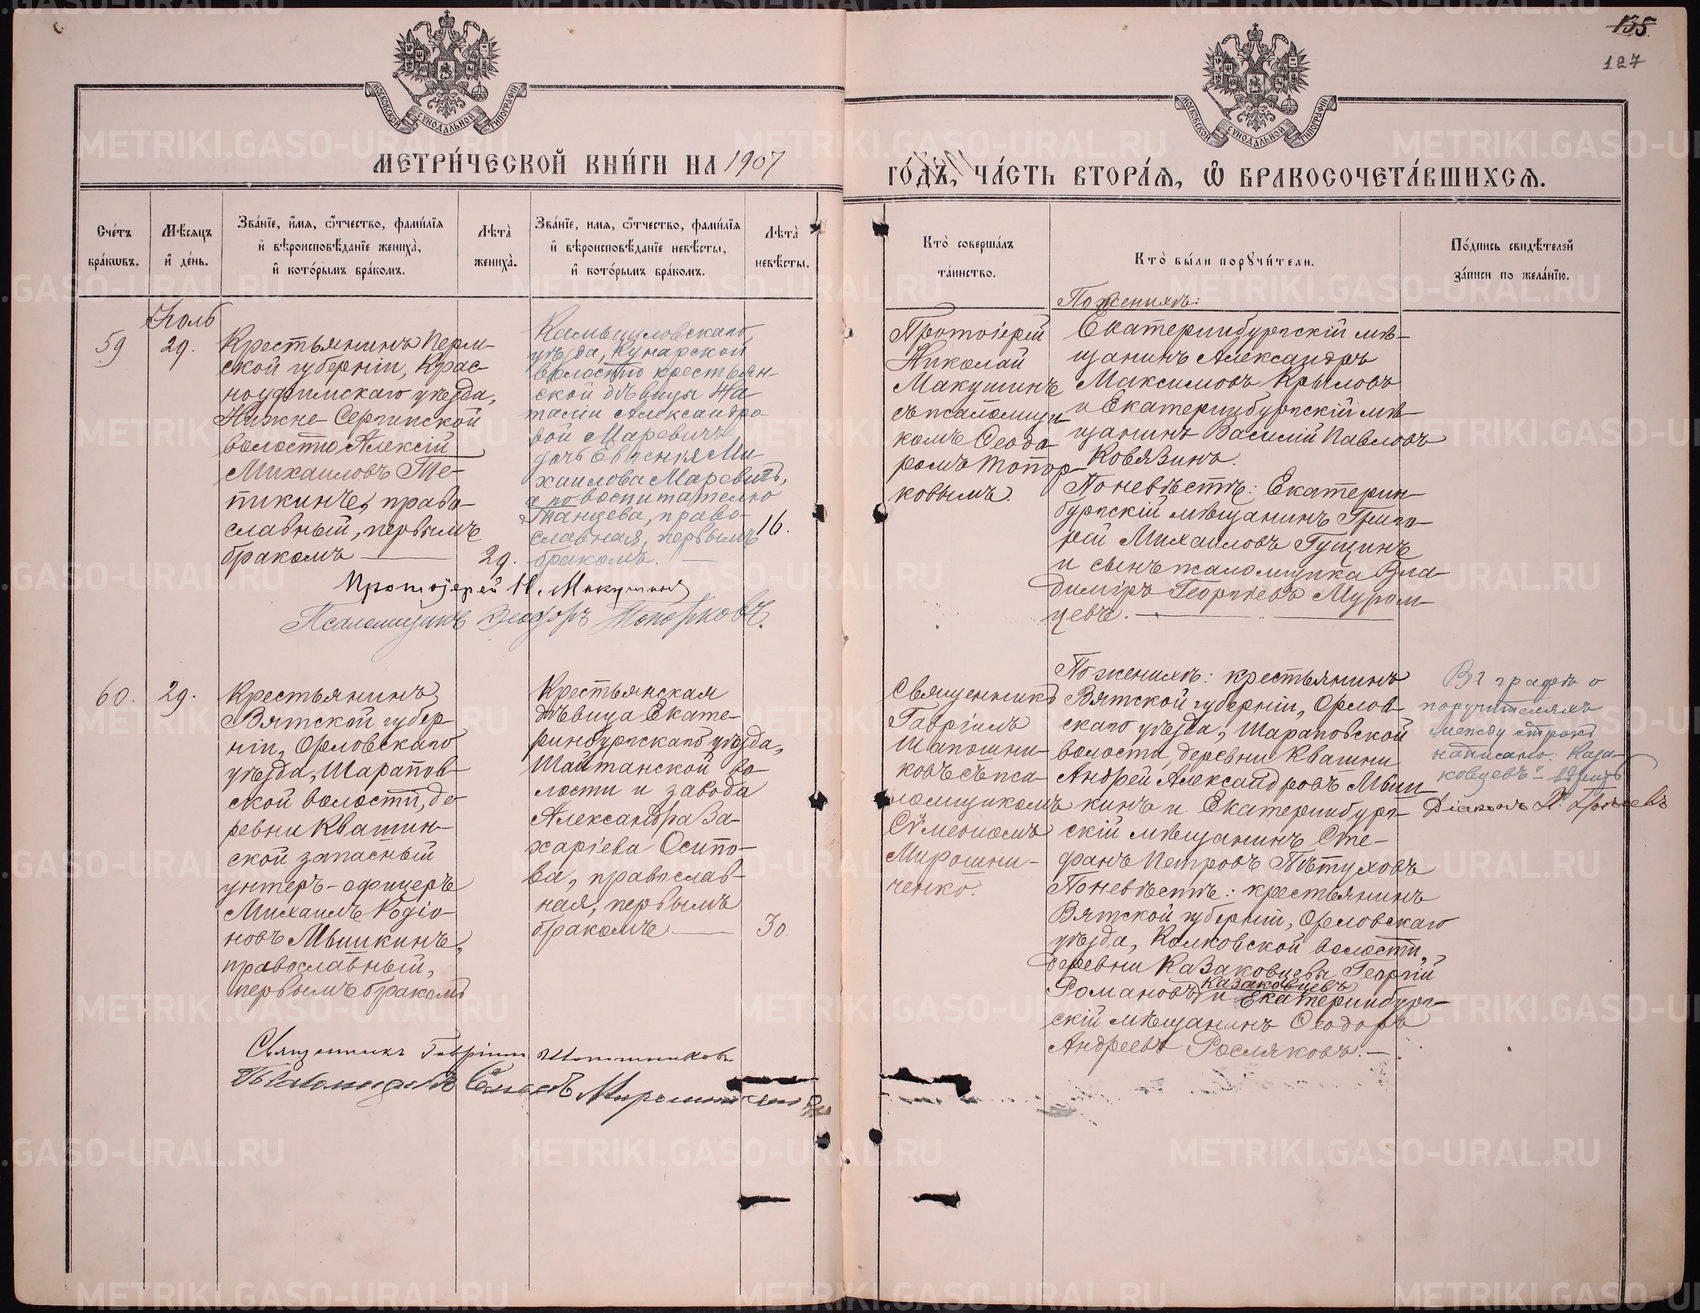 135.
127
МОСКОВСКОЙ СУНОДАЛЬНОЙ ТИПОГРАФІИ
МОСКОВСКОЙ СУНОДАЛЬНОЙ ТИПОГРАФІИ
МЕТРИ́ЧЕСКОЙ КНИ́ГИ НА 1907
ГО́ДЪ, ЧА́СТЬ ВТОРА́Я, Ѽ БРАКОСОЧЕТА́ВШИХСЯ.
Сче́тъ бра́кωвъ.
Мѣ́сяцъ и҆ де́нь.
Зва́нїе, и҆́мя, ѻ҆́тчество, фами́лїя и҆ вѣроисповѣ́данїе жениха̀, и҆ кото́рымъ бра́комъ.
Лѣта̀ жениха̀.
Зва́нїе, и҆́мя, ѻ҆́тчество, фами́лїя и҆ вѣроисповѣ́данїе невѣ́сты, и҆ кото́рымъ бра́комъ.
Лѣта̀ невѣ́сты.
Кто̀ соверша́лъ та́инство.
Кто̀ бы́ли порꙋчи́тели.
По́дпись свидѣ́телей за́писи по жела́нїю.
59
Іюль
29.
Крестьянинъ Перм-
ской губерніи, Крас-
ноуфимскаго уѣзда,
Нижне-Сергинской
волости Алексій
Михаиловъ Те-
пикинъ, право-
славный, первымъ
бракомъ
29.
Камышловскаго
уѣзда, Кунарской
волости крестьян-
ской дѣвицы На-
таліи Александро-
вой Маревичъ
дочь Евгенія Ми
хаилова Маревичъ,
а по воспитателю
Танцева, право-
славная, первымъ
бракомъ.
16.
Протоіерей
Николай
Макушинъ
съ псаломщи
комъ Ѳеодо
ромъ Топор
ковымъ.
По женихѣ:
Екатеринбургскій мѣ-
щанинъ Александръ
Максимовъ Крыловъ
и Екатеринбургскій мѣ-
щанинъ Василій Павловъ
Ковязинъ.
По невѣстѣ: Екатерин-
бургскій мѣщанинъ Григо-
рій Михаиловъ Гущинъ
и сынъ псаломщика Вла-
димiръ Георгіевъ Муром-
цевъ.
Протоіерей Н. Макушинъ
Псаломщикъ Ѳеодоръ Топорковъ.
60.
29.
Крестьянинъ
Вятской губер
ніи, Орловскаго
уѣзда, Шарапов-
ской волости, де
ревни Квашин-
ской запасный
унтеръ-офицеръ
Михаилъ Родіо-
новъ Мышкинъ,
православный,
первымъ бракомъ
Крестьянская
дѣвица Екате-
ринбургскаго уѣзда,
Шайтанской во-
лости и завода
Александра За-
харіева Осипо-
ва, православ-
ная, первымъ
бракомъ
30
Священникъ
Гавріилъ
Шапошни-
ковъ съ пса-
ломщикомъ
Сѵмеономъ
Мирошни-
ченко.
По женихѣ: крестьянинъ
Вятской губерніи, Орлов-
скаго уѣзда, Шараповской
волости, деревни Квашни
Андрей Александровъ Мыш
кинъ и Екатеринбург-
скій мѣщанинъ Сте-
фанъ Петровъ Пѣтуховъ
По невѣстѣ: крестьянинъ
Вятской губерніи, Орловскаго
уѣзда, Колковской волости,
деревни Казаковцевы Георгій
Казаковцевъ
Романовъ и Екатеринбург-
скій мѣщанинъ Ѳеодоръ
Андреевъ Росляковъ.
графѣ о
поручителяхъ
между строкъ
написано: Каза-
ковцевъ
Діаконъ
Священникъ Гавріилъ Шапошниковъ
Псаломщикъ Сѵмеонъ Мирошниченко